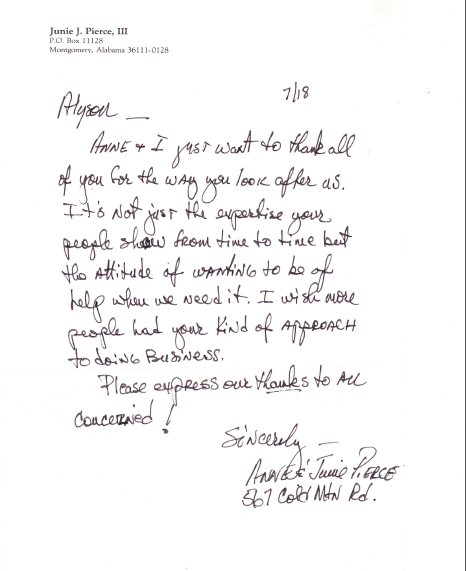 Junie J. Pierce, III
P.O. Box 11128
Montgomery, Alabama 36111-0128
7/18
Alyson —
Anne & I just want to thank all
of you for the way you look after us.
It's not just the expertise your
people show from time to time but
the attitude of wanting to be of
help when we need it. I wish more
people had your kind of approach
to doing business.
Please express our thanks to all
concerned!
Sincerely —
Anne & Junie Pierce
567 Mtn Rd.